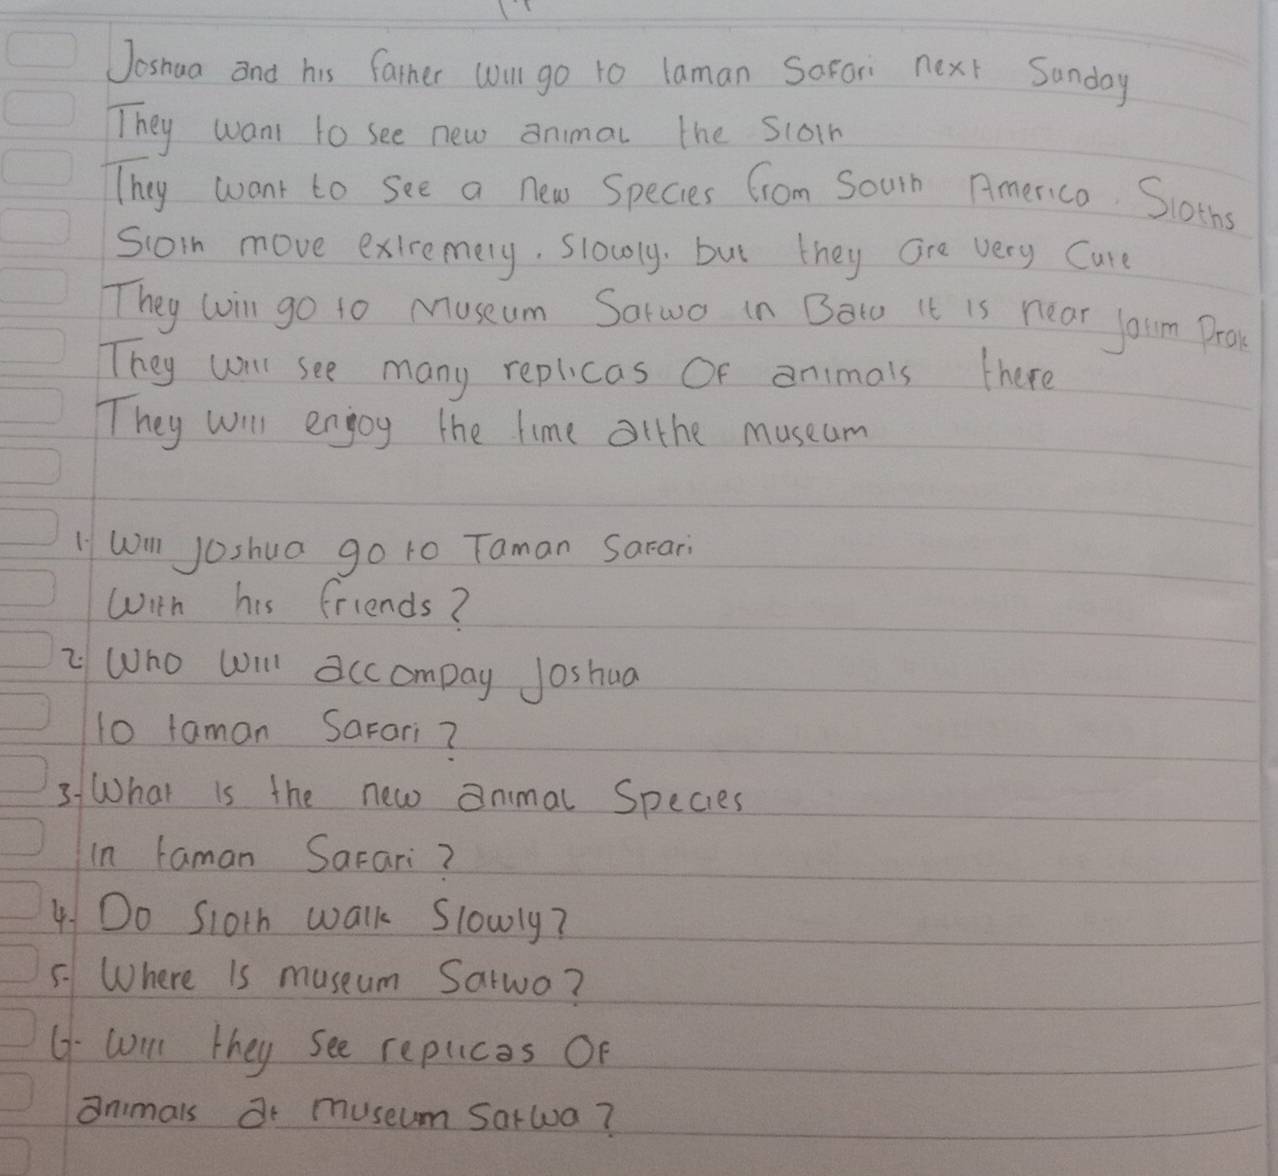 Joshua and his father will go to taman Safari next Sunday
They want to see new animal the Sloth
They want to see a new Species from South America. Sloths
Sloth move extremely. slowly. but they are very Cute
They will go to Museum Satwa in Batu it is near jatim Prak
They will see many replicas Of animals there
They will enjoy the time atthe museum
1. Will Joshua go to Taman Safari
With his friends?
2. Who will accompay Joshua
to taman Safari?
3. What is the new animal Species
in taman Safari?
4. Do Sloth walk Slowly?
5. Where is museum Satwa?
6. Will they see replicas Of
animals at museum Satwa?